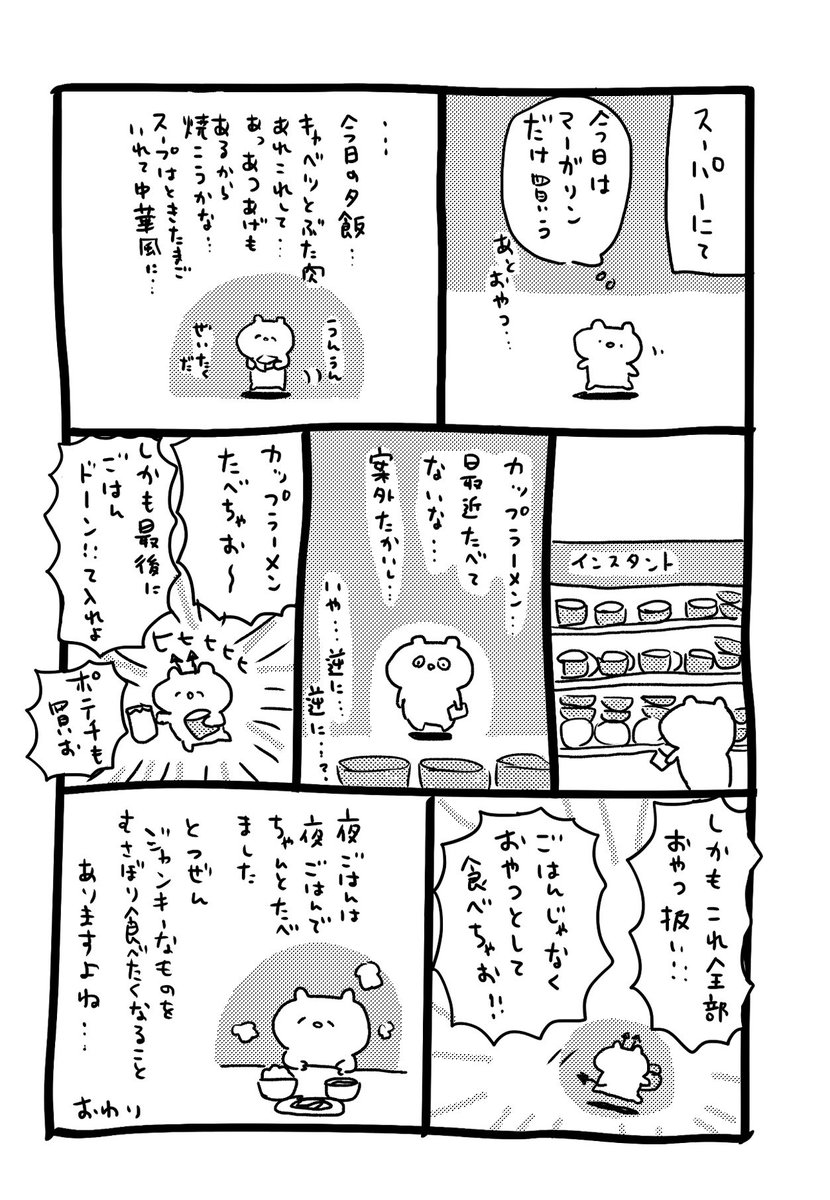 スーパーにて
今日は
マーガリン
だけ買う
あとおやつ…
…
今日の夕飯…
キャベツとぶた肉
あれこれして…
あっあつあげも
あるから
焼こうかな…
スープはときたまご
いれて中華風に…
うんうん
ぜいたく
だ
インスタント
カップラーメン…
最近たべて
ないな…
案外たかいし…
いや…逆に…
逆に…?
カップラーメン
たべちゃお〜
しかも最後に
ごはん
ドーン!!て入れよ
ヒヒヒヒヒ
ポテチも
買お
しかもこれ全部
おやつ扱い…
ごはんじゃなく
おやつとして
食べちゃお!!
夜ごはんは
夜ごはんで
ちゃんとたべ
ました
とつぜん
ジャンキーなものを
むさぼり食べたくなること
ありますよね…
おわり